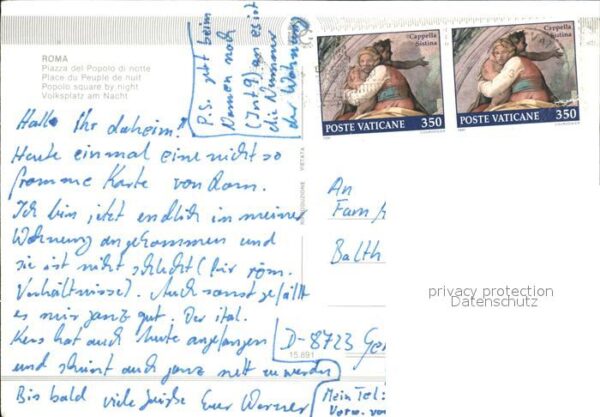 ROMA
Piazza del Popolo di notte
Place du Peuple de nuit
Popolo square by night
Volksplatz am Nacht
P.S. gebt beim
Namen noch
(Int. 9) an, es ist
die Nummer
der Wohnung
Cappella
Sistina
POSTE VATICANE 350
Cappella
Sistina
POSTE VATICANE 350
Hallo Ihr daheim!
Heute einmal eine nicht so
fromme Karte von Rom.
Ich bin jetzt endlich in meiner
Wohnung angekommen und
sie ist nicht schlecht (für röm.
Verhältnisse). Auch sonst gefällt
es mir ganz gut. Der ital.
Kurs hat auch heute angefangen
und scheint auch ganz nett zu werden
Bis bald viele Grüße Euer Werner
RIPRODUZIONE VIETATA
15.891
An
Fam
Balth
D-8723 Ger
Mein Tel:
Vorw. von
privacy protection
Datenschutz